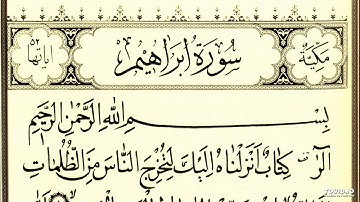 مَكِّيَّة سُورَةُ إِبْرَاهِيمَ آيَاتُهَا ٥٢
بِسْمِ اللَّهِ الرَّحْمَنِ الرَّحِيمِ
الٓر كِتَابٌ أَنْزَلْنَاهُ إِلَيْكَ لِتُخْرِجَ النَّاسَ مِنَ الظُّلُمَاتِ